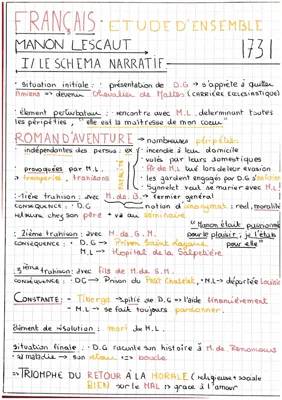 FRANÇAIS : ETUDE D'ENSEMBLE
MANON LESCAUT 1731
I/ LE SCHEMA NARRATIF
situation initiale : présentation de D.G → s'apprête à quitter
Amiens → devenir Chevalier de Malte (CARRIÈRE ECCLESIASTIQUE)
élément perturbateur : rencontre avec M.L. déterminant toutes
les péripéties, "elle est la maîtresse de mon cœur"
ROMAN D'AVENTURE → nombreuses péripéties
indépendantes des persos : ex - incendie à leur domicile
- volés par leurs domestiques
provoquées par M.L. - fr de M.L tué lors de leur évasion
→ tromperies, trahisons - les gardent engagés par G.G
- Synnelet veut se marier avec M.L
- 1ière trahison : avec M. de B. → fermier général
CONSEQUENCE : • D.G → notion d'anonymat : red, moralité
retourne chez son père + va au séminaire
"Manon était passionnée
- 2ième trahison : avec M. de G.M. pour le plaisir ; je l'étais
CONSEQUENCE : • D.G → Prison Saint Lazare pour elle"
M.L → Hopital de la Salpêtrière
- 3ième trahison : avec fils de M. de G.M.
CONSEQUENCE : • DG → Prison du Petit Chatelet, • M.L → déportée Louisiane
CONSTANTE : - Tiberge → pitié de D.G → l'aide financièrement
- M.L → se fait toujours pardonner.
élément de résolution : mort de M.L.
situation finale : D.G raconte son histoire à M. de Renoncour
→ TRIOMPHE DU RETOUR À LA MORALE (religieuse + sociale
BIEN sur le MAL → grace à l'amour